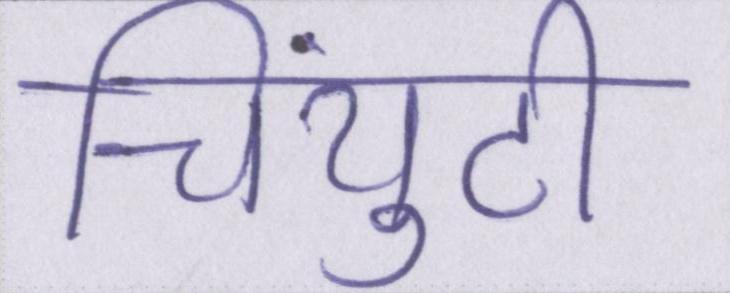 चिंयुटी